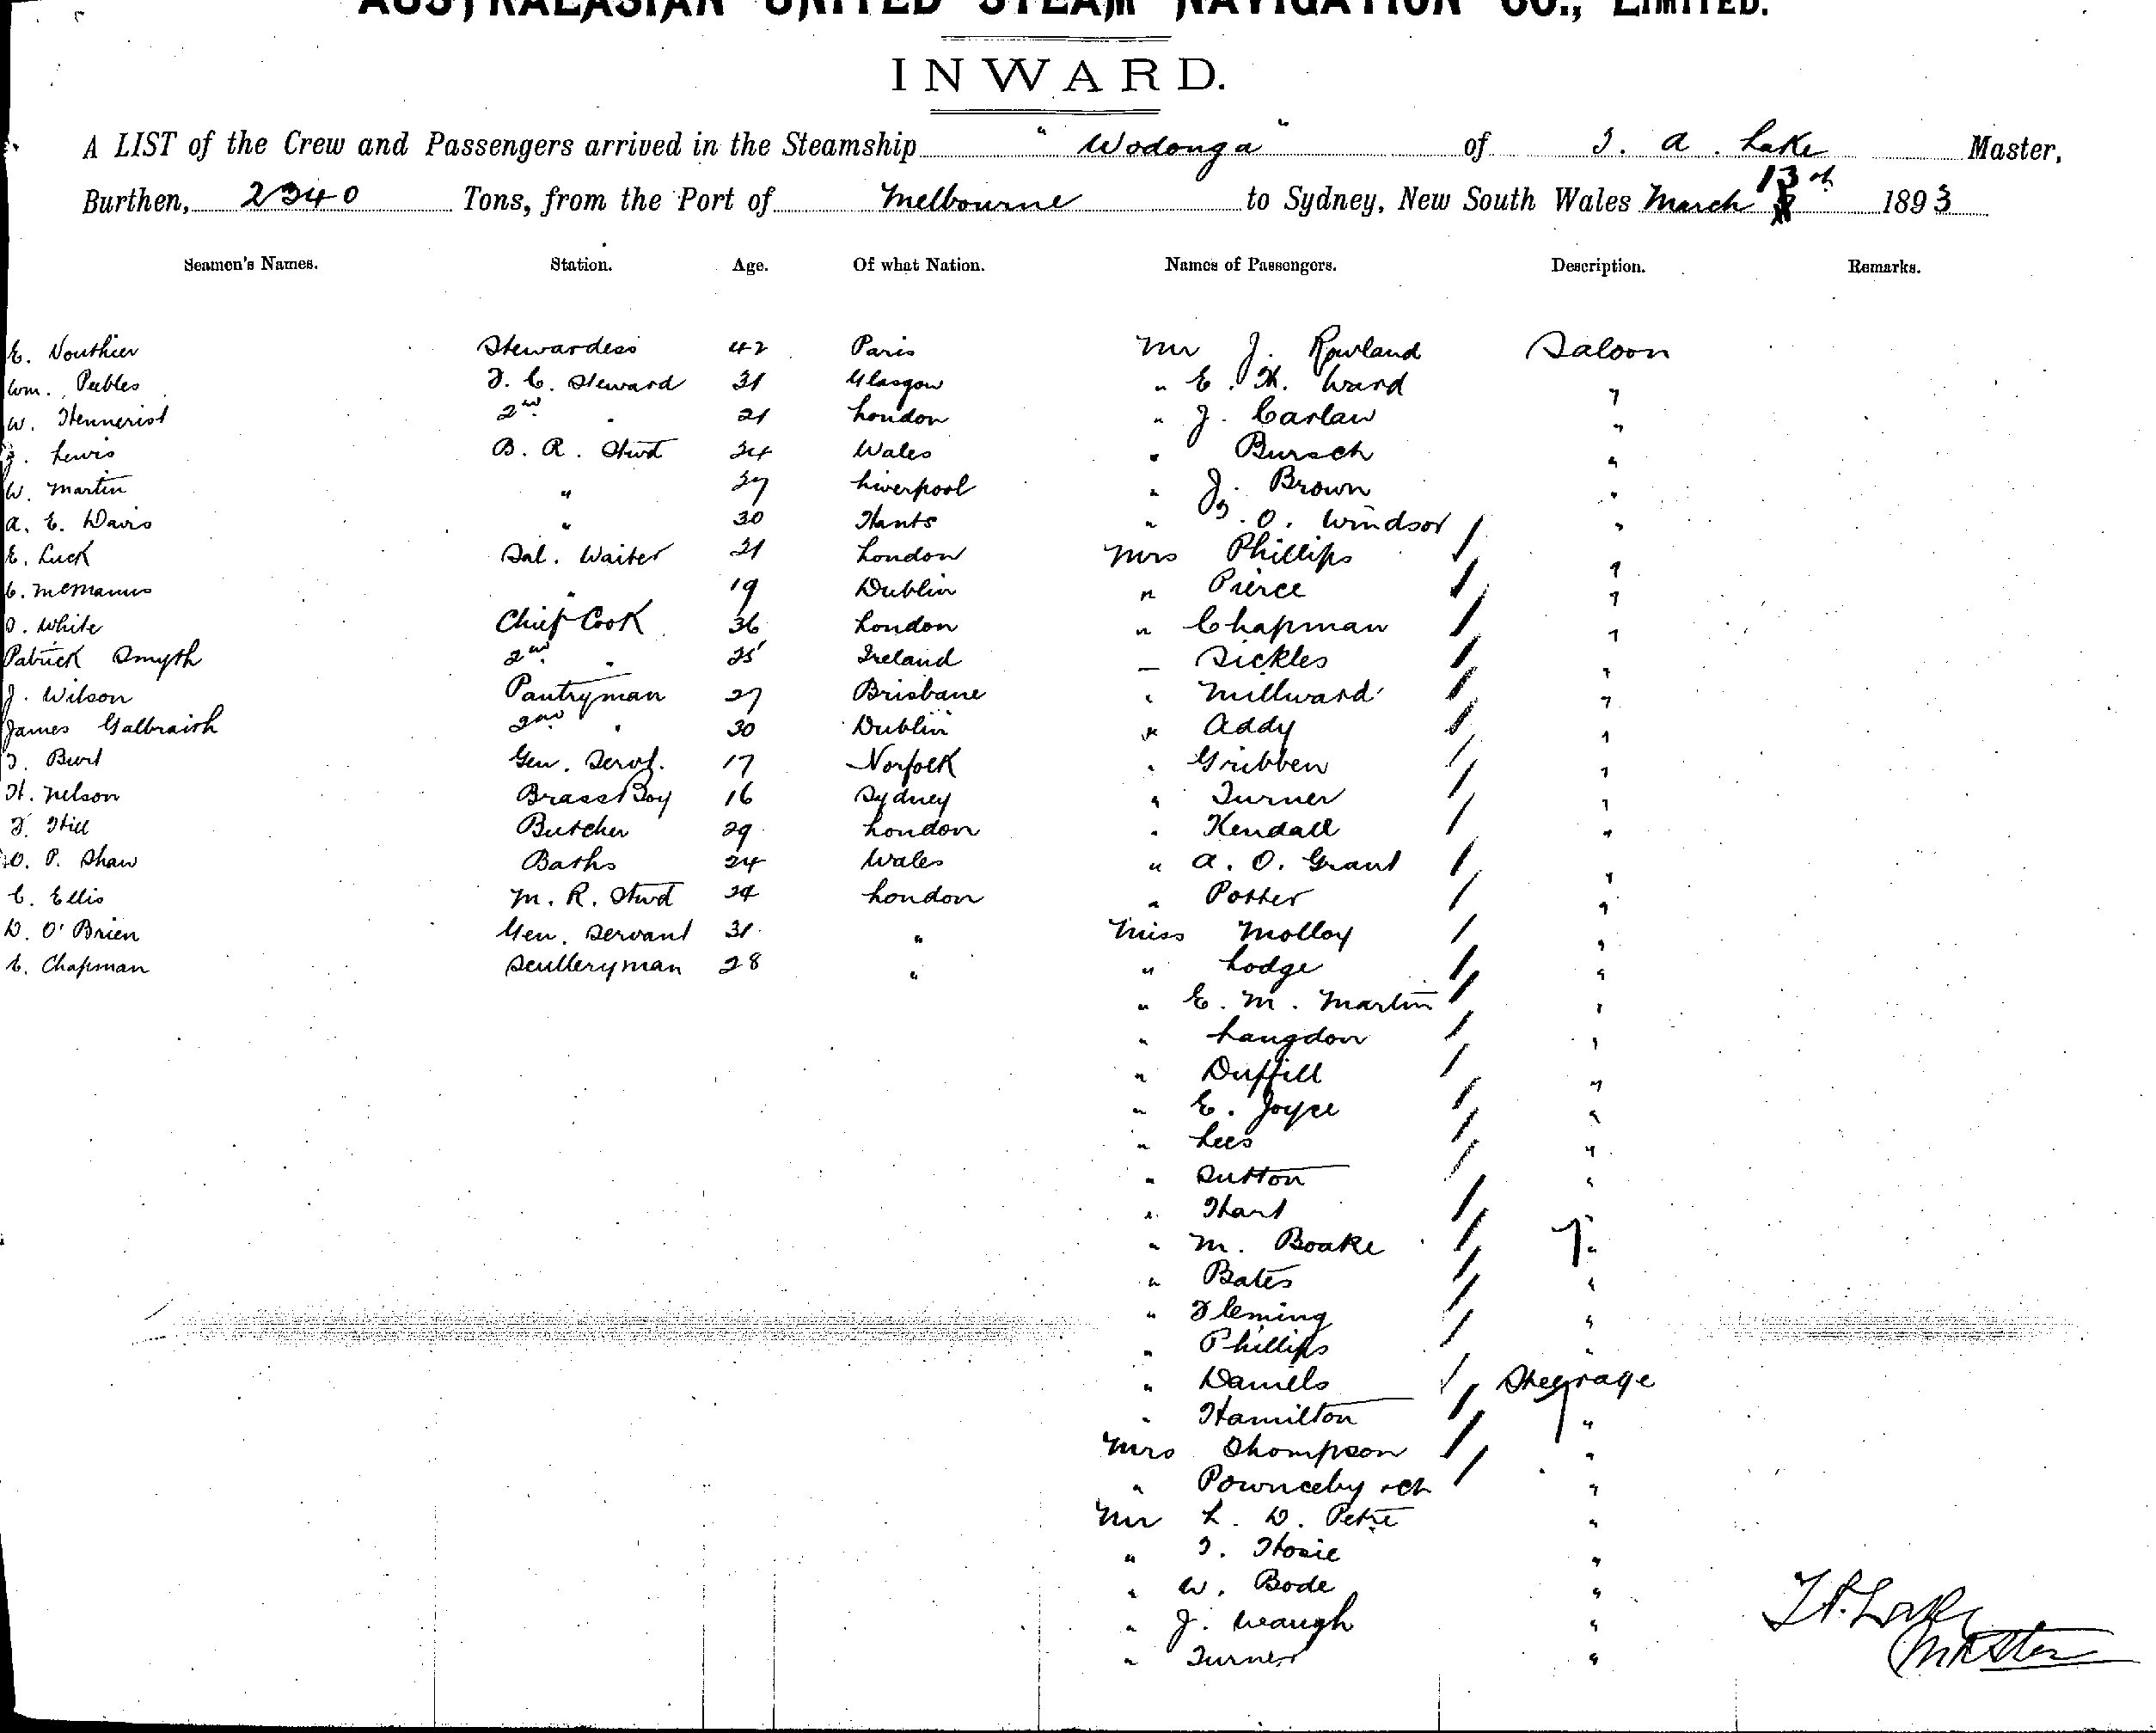 AUSTRALASIAN UNITED STEAM NAVIGATION CO., LIMITED.
INWARD.
A LIST of the Crew and Passengers arrived in the Steamship "Wodonga" of T. A. Lake Master,
Burthen, 2340 Tons, from the Port of Melbourne to Sydney, New South Wales March 13th 1893
Seamen's Names. Station. Age. Of what Nation. Names of Passengers. Description. Remarks.
E. Stewardess 42 Paris Mr J. Rowland Saloon
Wm. Peebles F. C. Steward 31 Glasgow " E. H. Ward "
W. 2nd " 21 London " J. Carlaw "
J. Lewis B. R. Stwd 24 Wales " Bursch "
W. Martin " 37 Liverpool " J. Brown "
A. E. Davis " 30 Hants " O. Windsor "
E. Luck Sal. Waiter 21 London Mrs Phillips "
C. McManus " 19 Dublin " Pierce "
White Chief Cook 36 London " Chapman "
Patrick Smyth 2nd " 25 Ireland " Sickles "
J. Wilson Pantryman 27 Brisbane " Millward "
James Galbraith 2nd " 30 Dublin " Addy "
T. Burt Gen. Servt. 17 Norfolk " Gribben "
H. Nelson Brass Boy 16 Sydney " Turner "
F. Hill Butcher 29 London " Kendall "
O. P. Shaw Baths 24 Wales " A. O. Grant "
C. Ellis M. R. Stwd 24 London " Potter "
D. O'Brien Gen. Servant 31 " Miss Molloy "
E. Chapman Sculleryman 28 " " Lodge "
" E. M. Martin "
" Langdon "
" Duffill "
" E. Joyce "
" Lees "
" Sutton "
" Hart "
" M. Boake "
" Bates "
" Fleming "
" Phillips "
" Daniels Steerage
" Hamilton "
Mrs Thompson "
" Pownceby + ch "
Mr L. D. Petrie "
" T. Hosie "
" W. Bode "
" J. Waugh "
" Turner "
T. A. Lake
Master